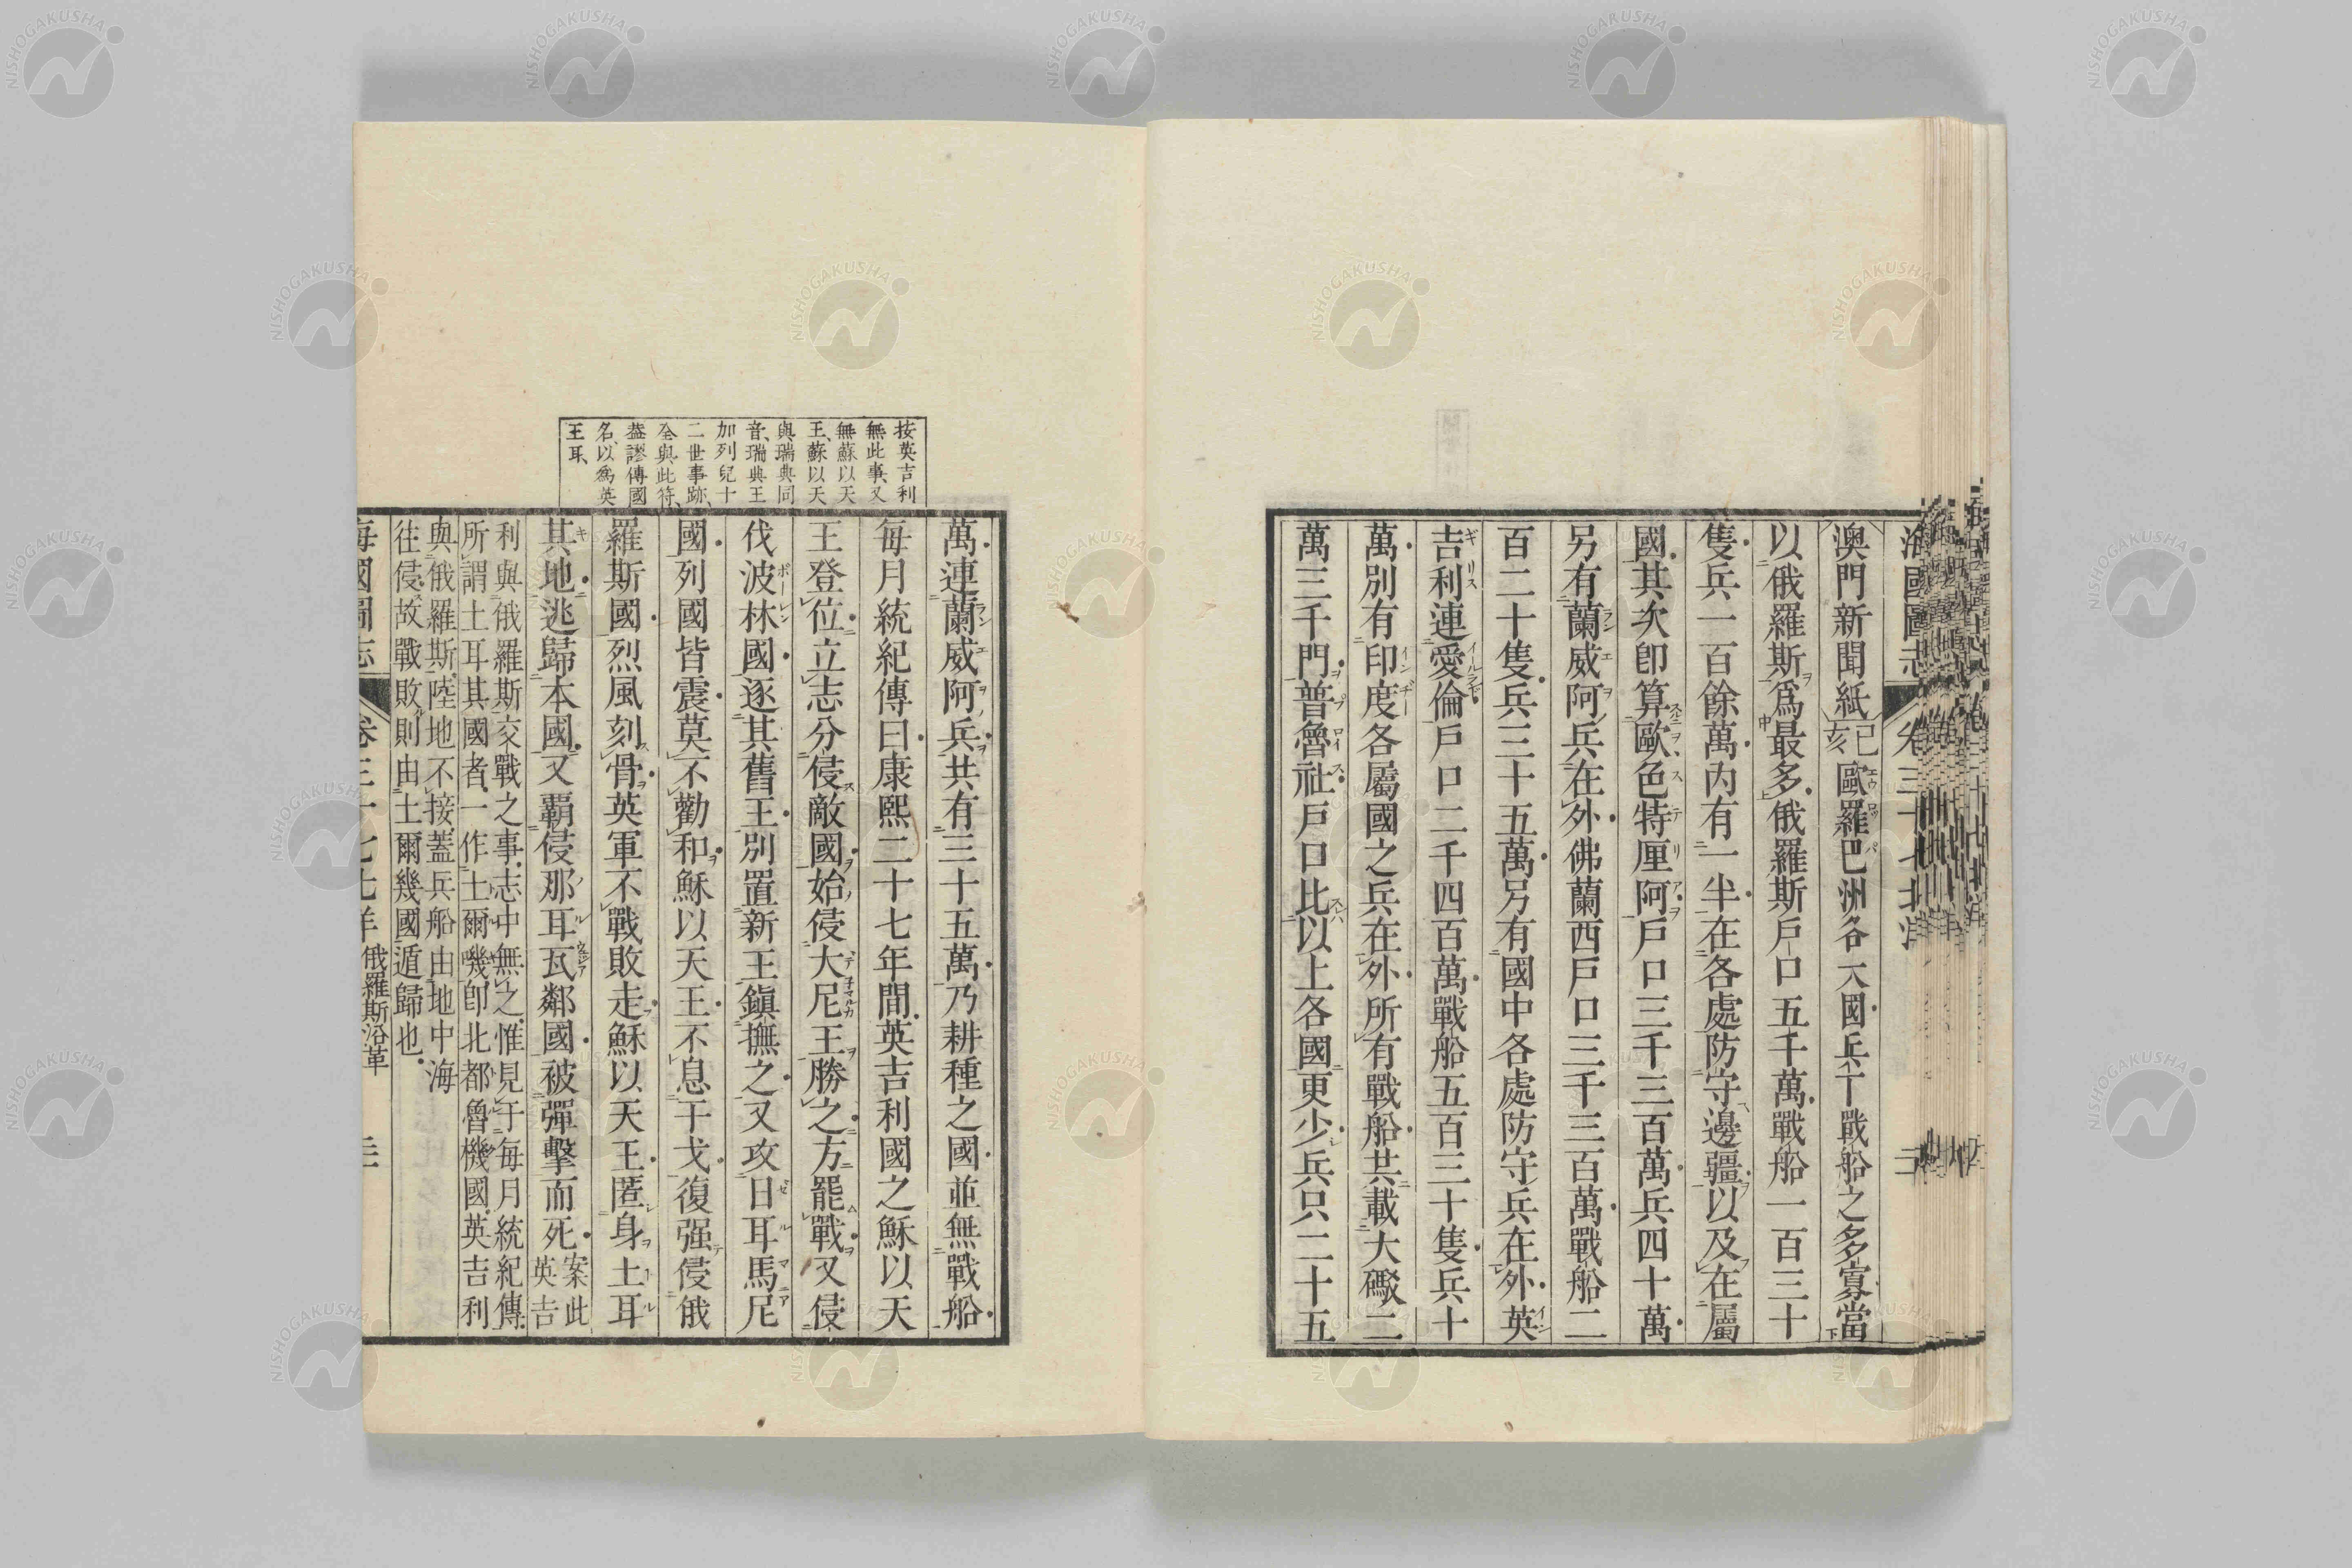 海國圖志
澳門新聞紙己亥歐羅巴洲各大國兵丁戰船之多寡當
以俄羅斯爲最多俄羅斯戶口五千萬戰船一百三十
隻兵一百餘萬內有一半在各處防守邊疆以及在屬
國其次卽算歐色特厘阿戶口三千三百萬兵四十萬
另有蘭威阿兵在外佛蘭西戶口三千三百萬戰船二
百二十隻兵三十五萬另有國中各處防守兵在外英
吉利連愛倫戶口二千四百萬戰船五百三十隻兵十
萬別有印度各屬國之兵在外所有戰船共載大礮二
萬三千門普魯社戶口比以上各國更少兵只二十五
按英吉利
無此事又
無蘇以天
王蘇以天
與瑞典同
音瑞典王
加列兒十
二世事跡
全與此符
蓋謬傳國
名以爲英
王耳
萬連蘭威阿兵共有三十五萬乃耕種之國並無戰船
每月統紀傳曰康熙二十七年間英吉利國之穌以天
王登位立志分侵敵國始侵大尼王勝之方罷戰又侵
伐波林國逐其舊王別置新王鎭撫之又攻日耳馬尼
國列國皆震莫不勸和穌以天王不息干戈復强侵俄
羅斯國烈風刻骨英軍不戰敗走穌以天王匿身土耳
其地逃歸本國又覇侵那耳瓦鄰國被彈擊而死案此英吉
利與俄羅斯交戰之事志中無之惟見于每月統紀傳
所謂土耳其國者一作土爾嘰卽北都魯機國英吉利
與俄羅斯陸地不接蓋兵船由地中海
往侵故戰敗則由土爾幾國遁歸也
海國圖志 卷三十七北洋 俄羅斯沿革 三
NISHOGAKUSHA